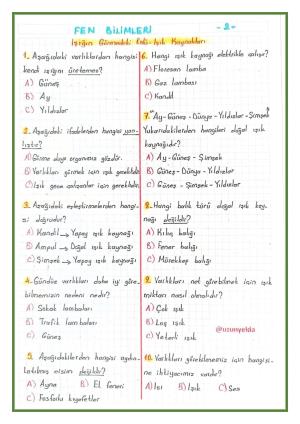 FEN BİLİMLERİ
-2-
Işığın Görmedeki Rolü-Işık Kaynakları
1. Aşağıdaki varlıklardan hangisi
kendi ışığını üretemez?
A) Güneş
B) Ay
C) Yıldızlar
2. Aşağıdaki ifadelerden hangisi yan-
lıştır?
A) Görme duyu organımız gözdür.
B) Varlıkları görmek için ışık gereklidir.
C) Işık gece çalışanlar için gereklidir.
3. Aşağıdaki eşleştirmelerden hangi-
si doğrudur?
A) Kandil → Yapay ışık kaynağı
B) Ampul → Doğal ışık kaynağı
C) Şimşek → Yapay ışık kaynağı
4. Gündüz varlıkları daha iyi göre-
bilmemizin nedeni nedir?
A) Sokak lambaları
B) Trafik lambaları
C) Güneş
5. Aşağıdakilerden hangisi aydın-
latılmış cisim değildir?
A) Ayna
B) El feneri
C) Fosforlu kıyafetler
6. Hangi ışık kaynağı elektrikle çalışır?
A) Floresan lamba
B) Gaz lambası
C) Kandil
7. "Ay-Güneş-Dünya-Yıldızlar-Şimşek"
Yukarıdakilerden hangileri doğal ışık
kaynağıdır?
A) Ay-Güneş-Şimşek
B) Güneş-Dünya-Yıldızlar
C) Güneş-Şimşek-Yıldızlar
8. Hangi balık türü doğal ışık kay-
nağı değildir?
A) Kılıç balığı
B) Fener balığı
C) Mürekkep balığı
9. Varlıkları net görebilmek için ışık
miktarı nasıl olmalıdır?
A) Çok ışık
B) Loş ışık
C) Yeterli ışık
@uzunyelda
10. Varlıkları görebilmemiz için hangisi-
ne ihtiyacımız vardır?
A) Isı B) Işık C) Ses